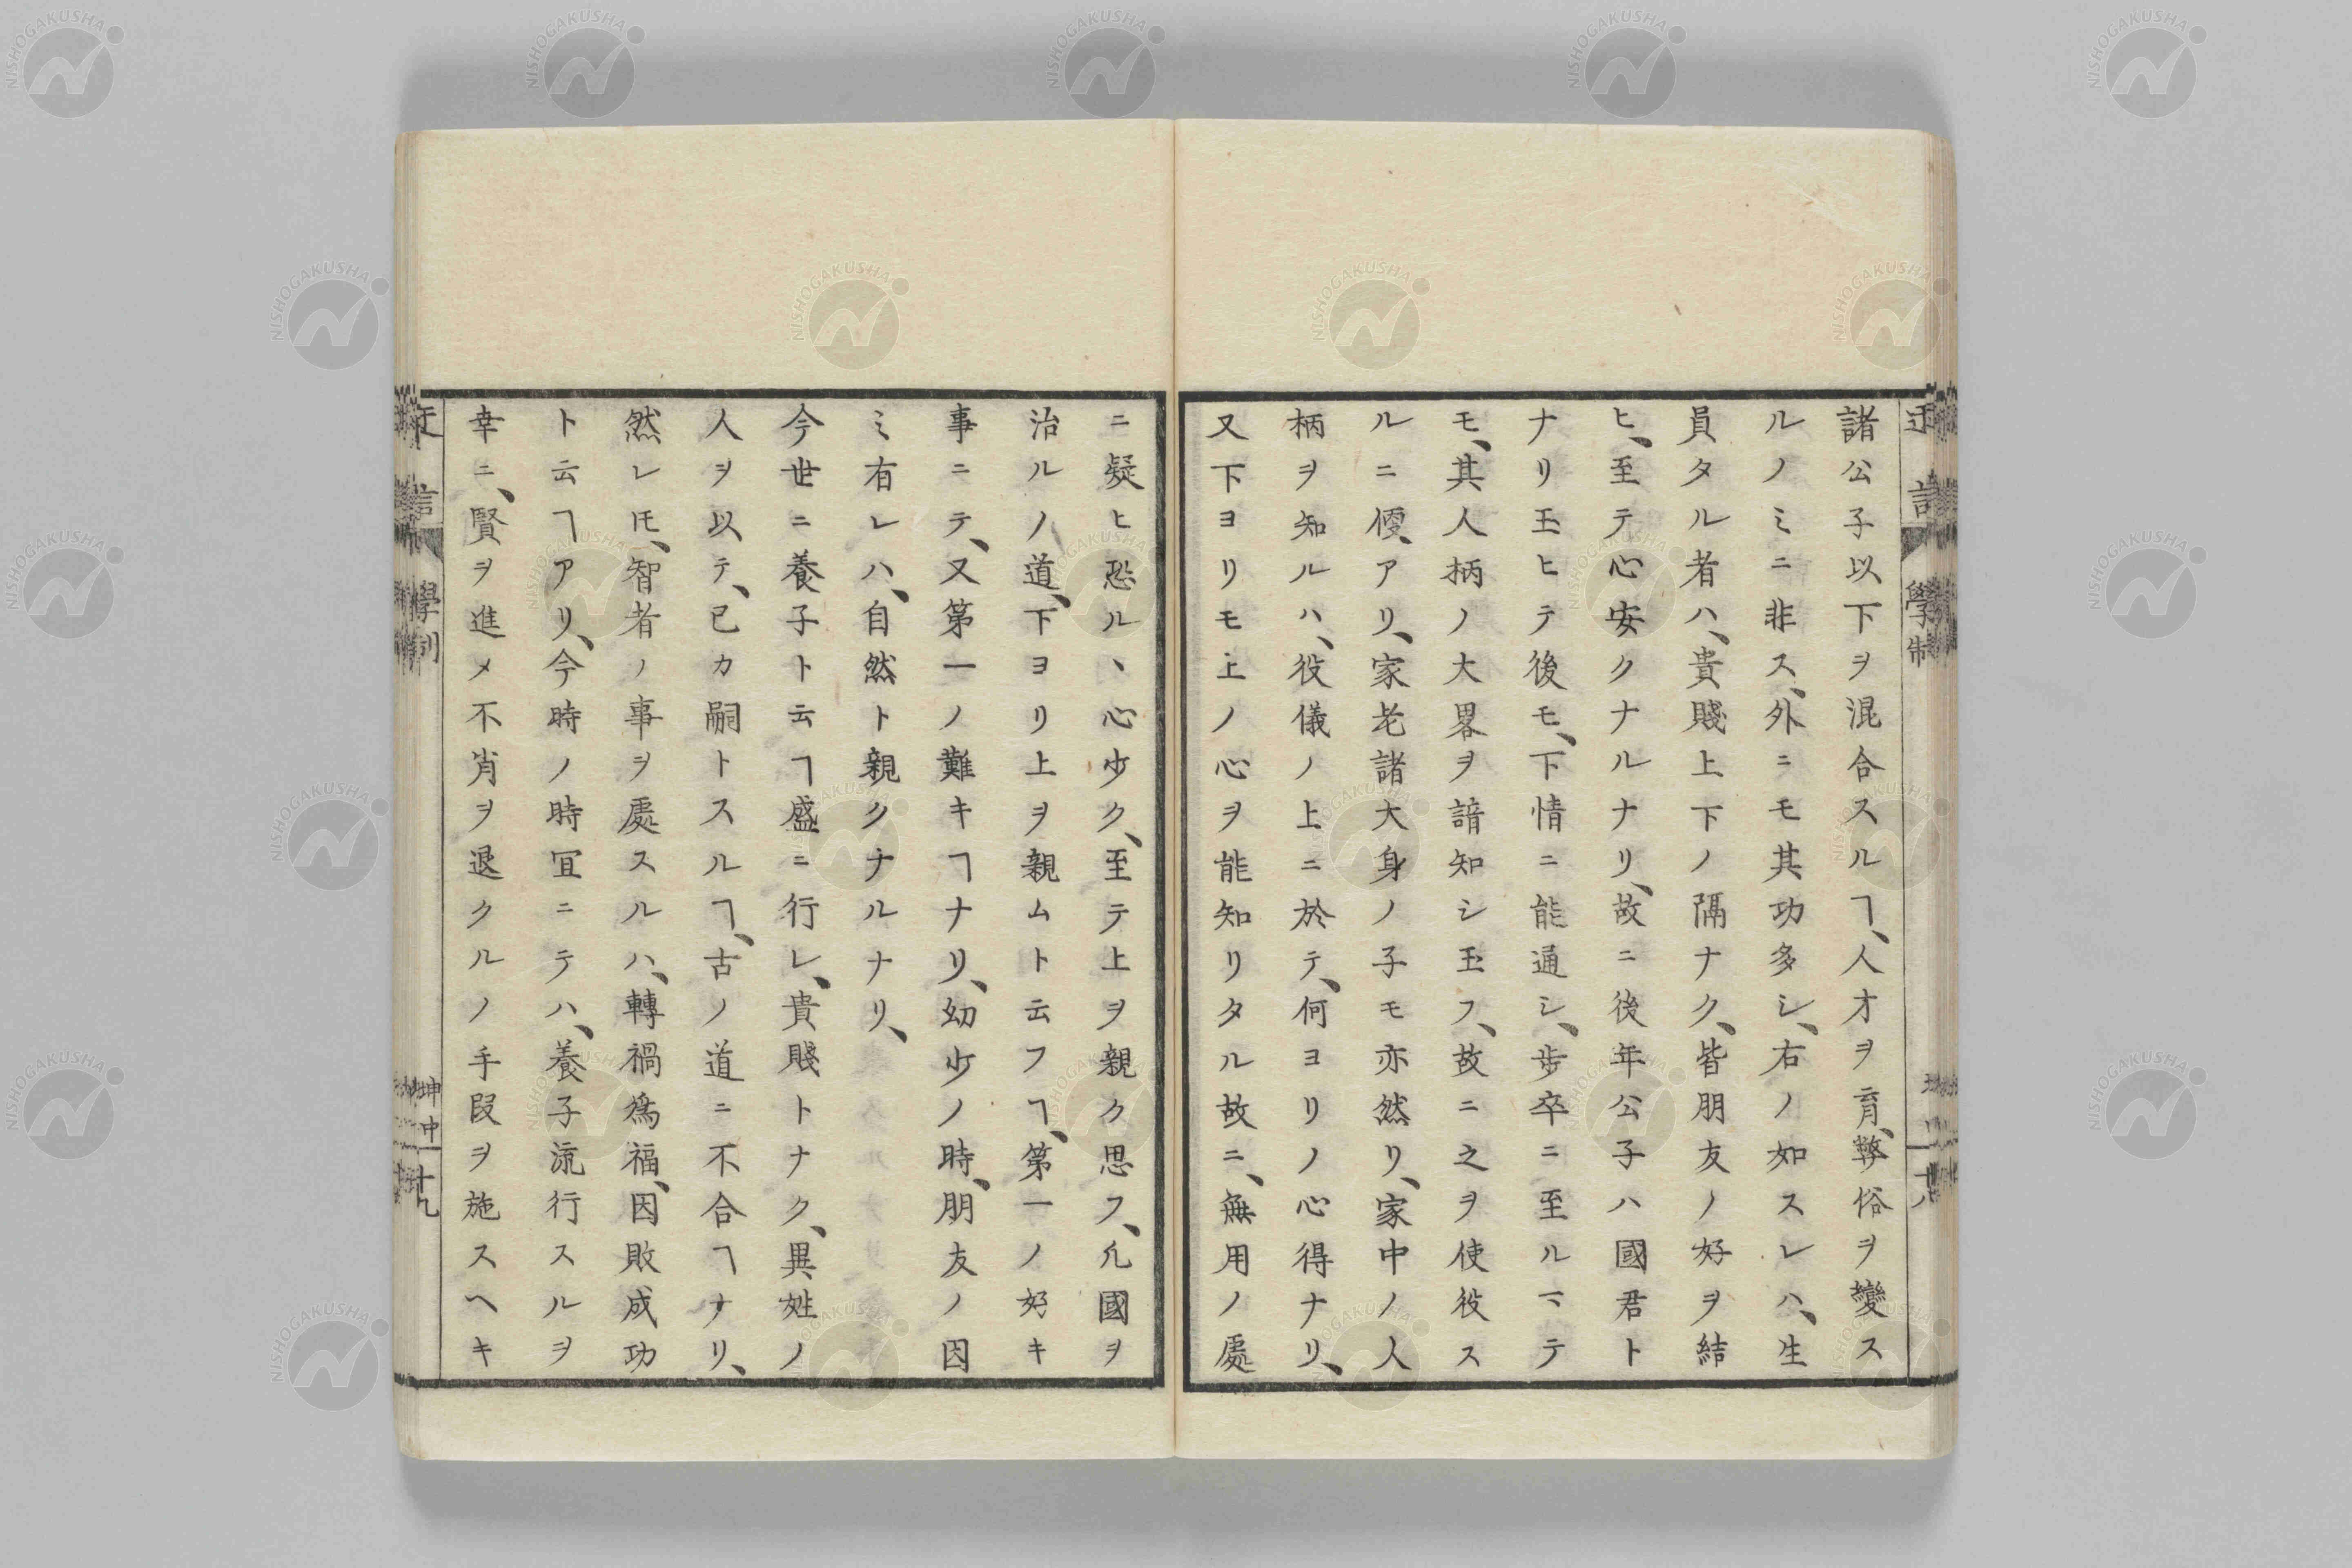 諸公子以下ヲ混合スルヿ、人才ヲ育、弊俗ヲ變ス
ルノミニ非ス、外ニモ其功多シ、右ノ如スレハ、生
員タル者ハ、貴賤上下ノ隔ナク、皆朋友ノ好ヲ結
ヒ、至テ心安クナルナリ、故ニ後年公子ハ國君ト
ナリ玉ヒテ後モ、下情ニ能通シ、歩卒ニ至ルマテ
モ、其人柄ノ大畧ヲ諳知シ玉フ、故ニ之ヲ使役ス
ルニ便アリ、家老諸大身ノ子モ亦然リ、家中ノ人
柄ヲ知ルハ、役儀ノ上ニ於テ、何ヨリノ心得ナリ、
又下ヨリモ上ノ心ヲ能知リタル故ニ、無用ノ處
ニ疑ヒ恐ルヽ心少ク、至テ上ヲ親ク思フ、凡國ヲ
治ルノ道、下ヨリ上ヲ親ムト云フヿ、第一ノ好キ
事ニテ、又第一ノ難キヿナリ、幼少ノ時、朋友ノ因
ミ有レハ、自然ト親クナルナリ、
今世ニ養子ト云ヿ盛ニ行レ、貴賤トナク、異姓ノ
人ヲ以テ、己カ嗣トスルヿ、古ノ道ニ不合ヿナリ、
然レ𪜈、智者ノ事ヲ處スルハ、轉禍為福、因敗成功
ト云ヿアリ、今時ノ時宜ニテハ、養子流行スルヲ
幸ニ、賢ヲ進メ不肖ヲ退クルノ手段ヲ施スヘキ
迂言
學制
坤中
十九
NISHOGAKUSHA